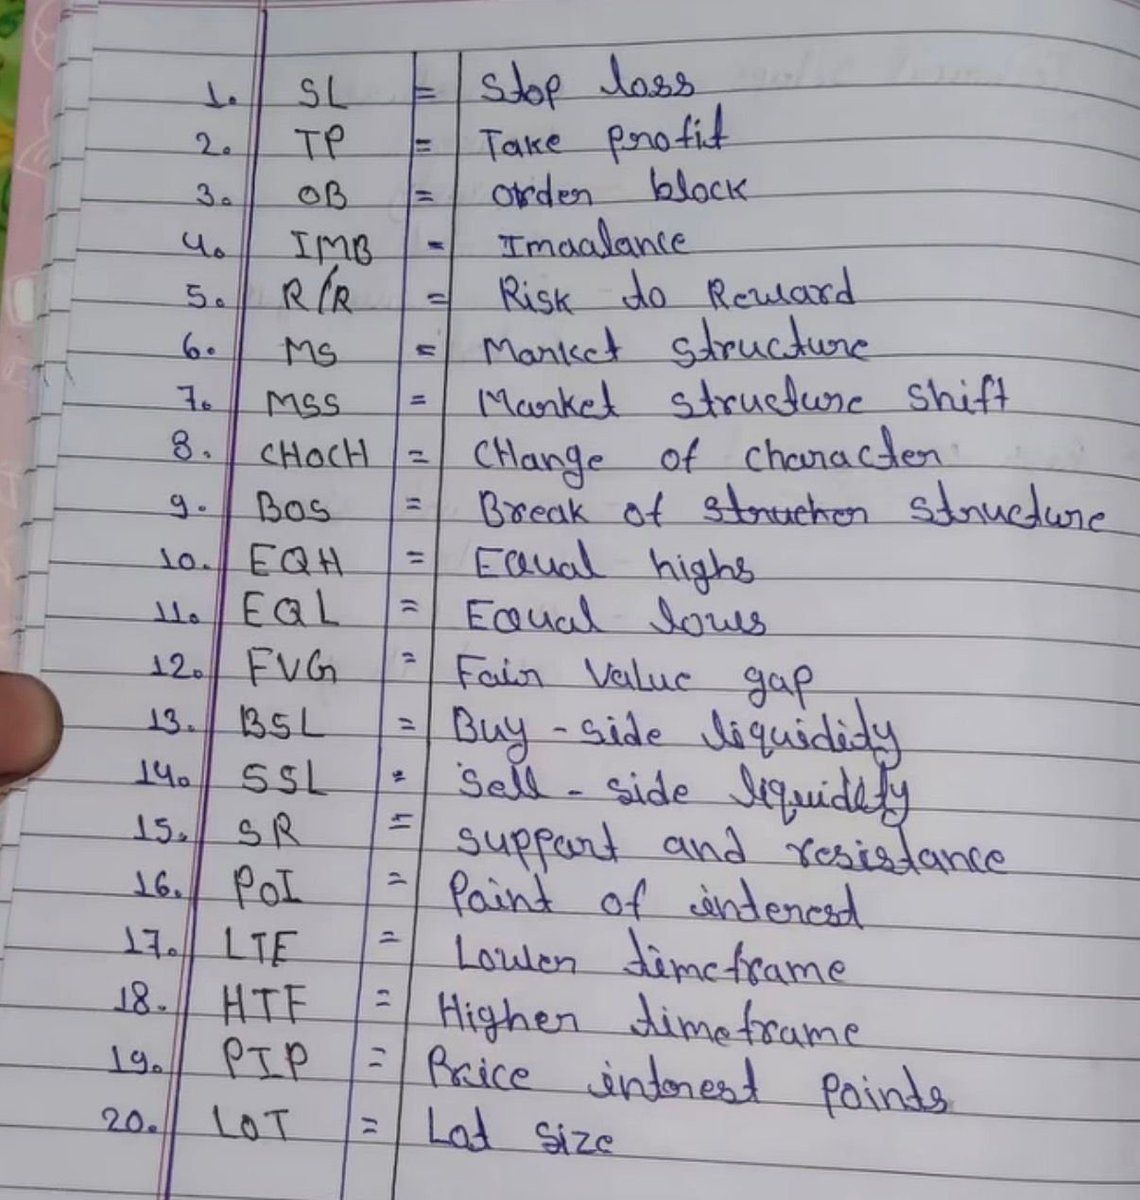 1. SL = Stop loss
2. TP = Take profit
3. OB = Order block
4. IMB = Imaalance
5. R/R = Risk to Reward
6. MS = Market structure
7. MSS = Market structure shift
8. CHOCH = CHange of character
9. BOS = Break of structure
10. EQH = Equal highs
11. EQL = Equal lows
12. FVG = Fair Value gap
13. BSL = Buy-side liquidity
14. SSL = Sell-side liquidity
15. SR = support and resistance
16. POI = Point of interest
17. LTF = Lower timeframe
18. HTF = Higher timeframe
19. PIP = Price interest points
20. LOT = Lot size